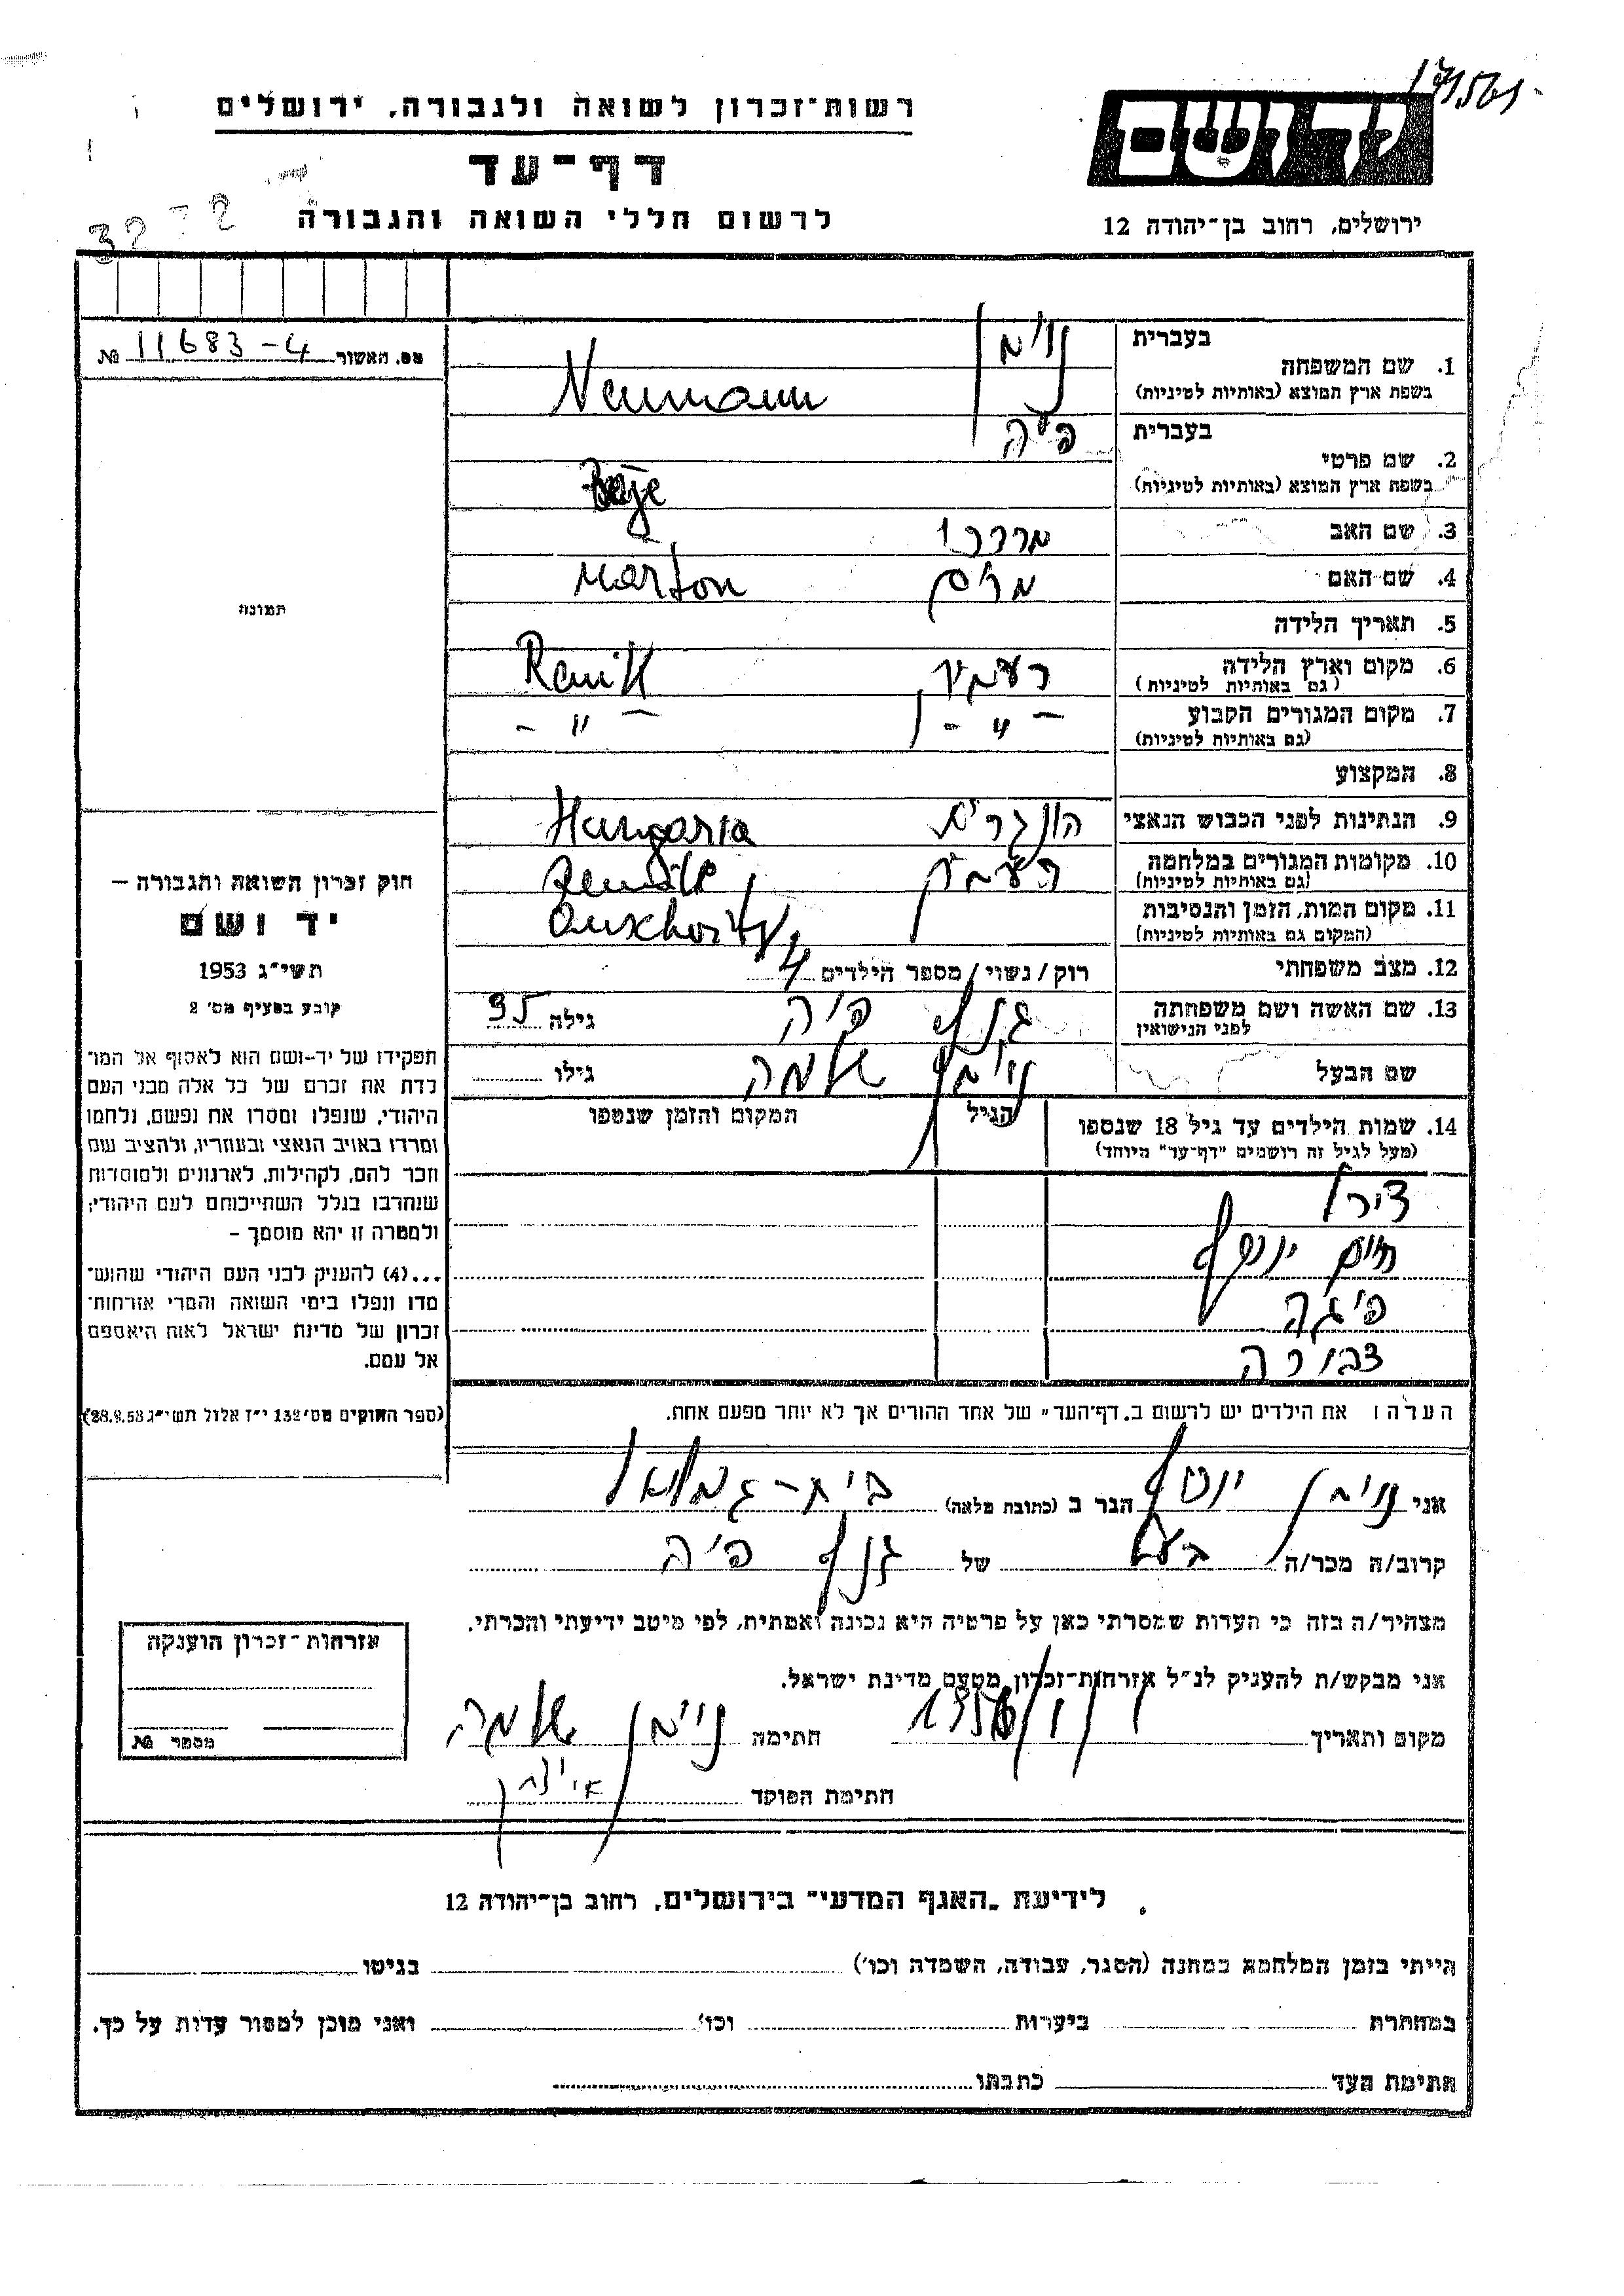 רשות־זכרון לשואה ולגבורה, ירושלים
דף־עד
לרשום חללי השואה והגבורה
יד ושם
ירושלים, רחוב בן־יהודה 12
מס. האשור 11683-4 №
תמונה
חוק זכרון השואה והגבורה –
יד ושם
תשי״ג 1953
קובע בסעיף מס׳ 2
תפקידו של יד-ושם הוא לאסוף אל המו־
לדת את זכרם של כל אלה מבני העם
היהודי, שנפלו ומסרו את נפשם, נלחמו
ומרדו באויב הנאצי ובעוזריו, ולהציב שם
וזכר להם, לקהילות, לארגונים ולמוסדות
שנחרבו בגלל השתייכותם לעם היהודי;
ולמטרה זו יהא מוסמך –
...(4) להעניק לבני העם היהודי שהוש־
מדו ונפלו בימי השואה והמרי אזרחות־
זכרון של מדינת ישראל לאות היאספם
אל עמם.
(ספר החוקים מס׳ 132 י״ז אלול תשי״ג 28.8.53)
בעברית נוימן
1. שם המשפחה
בשפת ארץ המוצא (באותיות לטיניות) Neumann
בעברית
2. שם פרטי
בשפת ארץ המוצא (באותיות לטיניות)
3. שם האב מרדכי
4. שם האם מרים Marton
5. תאריך הלידה
6. מקום וארץ הלידה
(גם באותיות לטיניות)
7. מקום המגורים הקבוע - " - - " -
(גם באותיות לטיניות)
8. המקצוע
9. הנתינות לפני הכבוש הנאצי הונגרית Hungaria
10. מקומות המגורים במלחמה
(גם באותיות לטיניות)
11. מקום המות, הזמן והנסיבות
(המקום גם באותיות לטיניות)
12. מצב משפחתי רוק/נשוי/מספר הילדים 4
13. שם האשה ושם משפחתה גילה 35
לפני הנישואין
שם הבעל נוימן שלמה גילו
14. שמות הילדים עד גיל 18 שנספו הגיל המקום והזמן שנספו
(מעל לגיל זה רושמים "דף־עד" מיוחד)
חיים יוסף
פיגה
דבורה
הערה: את הילדים יש לרשום ב„דף־העד״ של אחד ההורים אך לא יותר מפעם אחת.
אני נוימן יוסף הגר ב (כתובת מלאה) בית-גמליאל
קרוב/ה מכר/ה בעל של
מצהיר/ה בזה כי העדות שמסרתי כאן על פרטיה היא נכונה ואמתית, לפי מיטב ידיעתי והכרתי.
אני מבקש/ת להעניק לנ״ל אזרחות־זכרון מטעם מדינת ישראל.
מקום ותאריך חתימה נוימן שלמה
חתימת הפוקד
אזרחות־זכרון הוענקה
מספר №
לידיעת „האגף המדעי״ בירושלים, רחוב בן־יהודה 12
הייתי בזמן המלחמה במחנה (הסגר, עבודה, השמדה וכו׳) בגיטו
במחתרת ביערות וכו׳ ואני מוכן למסור עדות על כך.
חתימת העד כתבתו